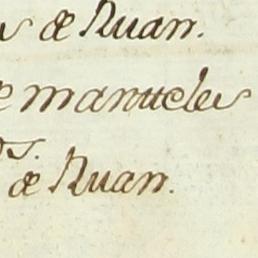 s de Ruan.
e manteles
s. de Ruan.